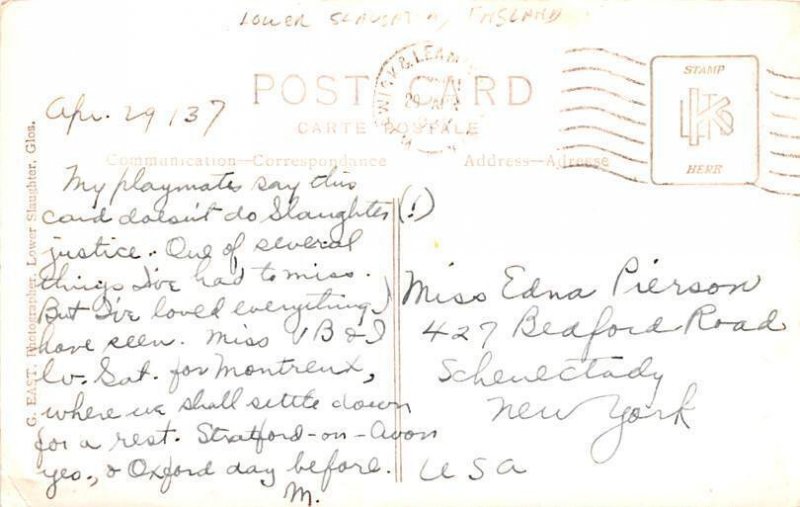 LOWER SLAUGHTER, ENGLAND
POST CARD
CARTE POSTALE
Communication—Correspondance
Address—Adresse
WARWICK & LEAM
STAMP
HERE
G. EAST, Photographer, Lower Slaughter, Glos.
Apr. 29 / 37
My playmates say this
card doesn't do Slaughter (!)
justice. One of several
things I've had to miss.
But I've loved everything I
have seen. Miss B & I
lv. Sat. for Montreux,
where we shall settle down
for a rest. Stratford-on-Avon
yes., & Oxford day before.
M.
Miss Edna Pierson
427 Bedford Road
Schenectady
New York
USA